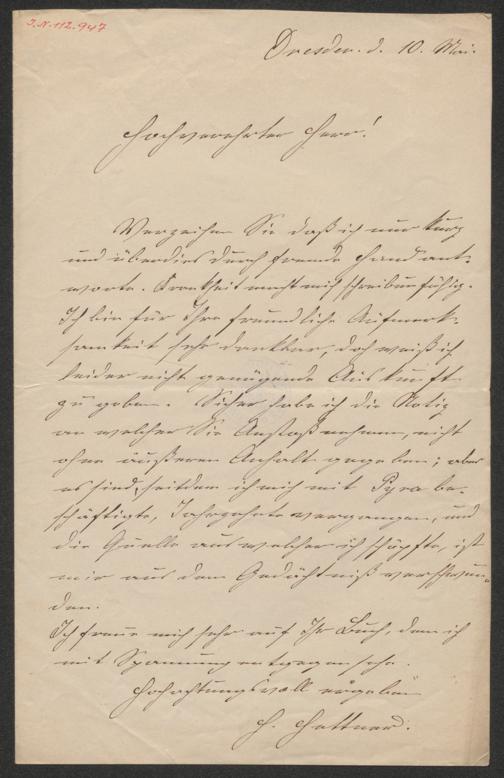 J.N. 112.947
Dresden. d. 10. Mai.
Hochverehrter Herr!
Verzeihen Sie daß ich nur kurz
und überdies durch fremde Hand ant-
worte. Krankheit macht mich schreibunfähig.
Ich bin für Ihre freundliche Aufmerk-
samkeit sehr dankbar, doch weiß ich
leider nicht genügende Auskunft
zu geben. Sicher habe ich die Notiz
an welcher Sie Anstoß nehmen, nicht
ohne äußeren Anhalt gegeben; aber
es sind, seitdem ich mich mit Pyra be-
schäftigte, Jahrzehnte vergangen, und
die Quelle aus welcher ich schöpfte, ist
mir aus dem Gedächtniß verschwun-
den.
Ich freue mich sehr auf Ihr Buch, dem ich
mit Spannung entgegensehe.
Hochachtungsvoll ergeben
H. Hettner.